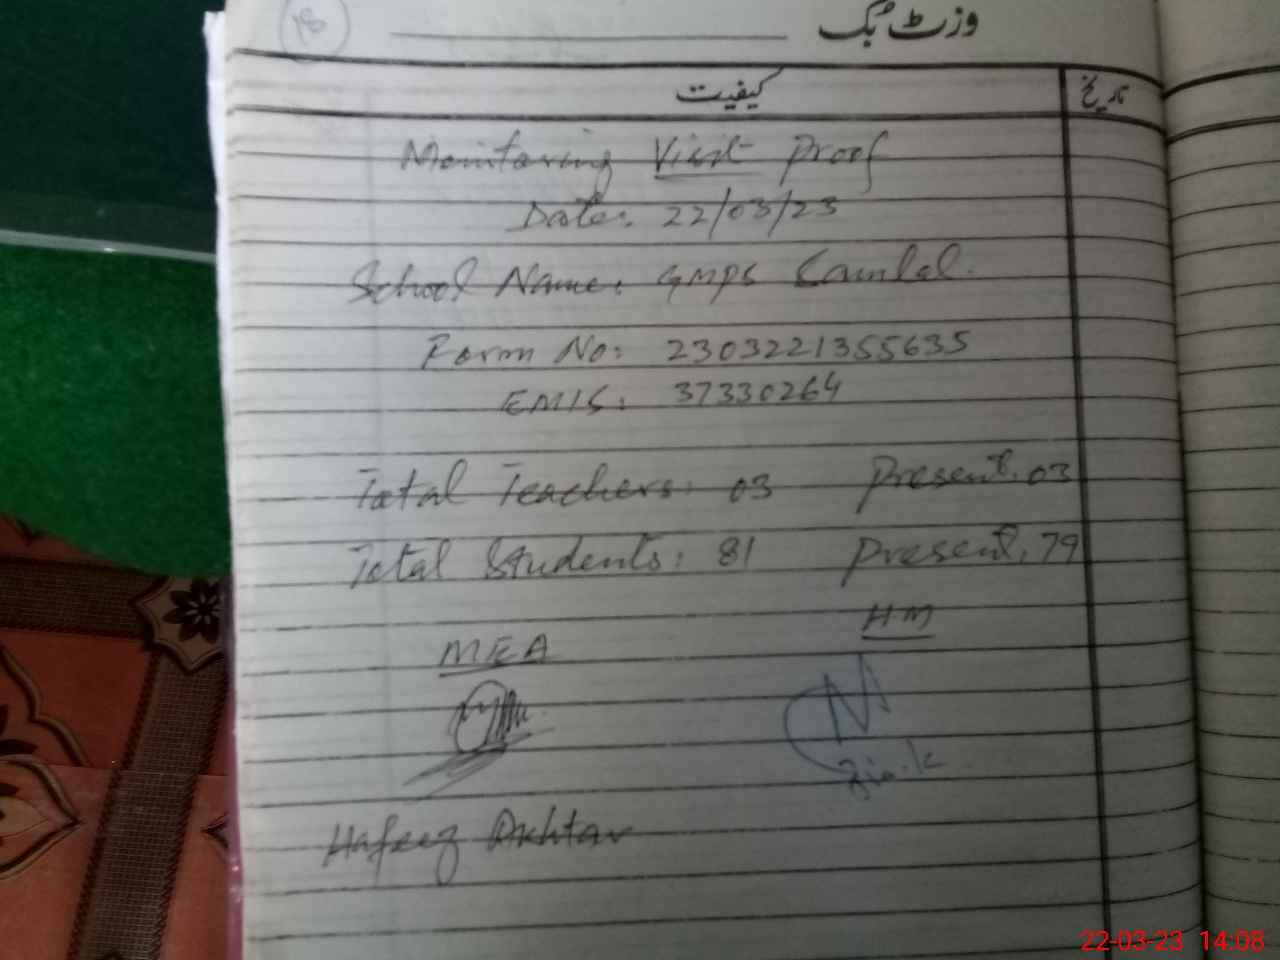 18
وزٹ بُک
کیفیت تاریخ
Monitoring Visit Proof
Date: 22/03/23
School Name: GMPS
Form No: 2303221355635
EMIS: 37330264
Total Teachers: 03 Present. 03
Total Students: 81 Present. 79
MEA H.M
Hafeez Akhtar
22-03-23 14:08